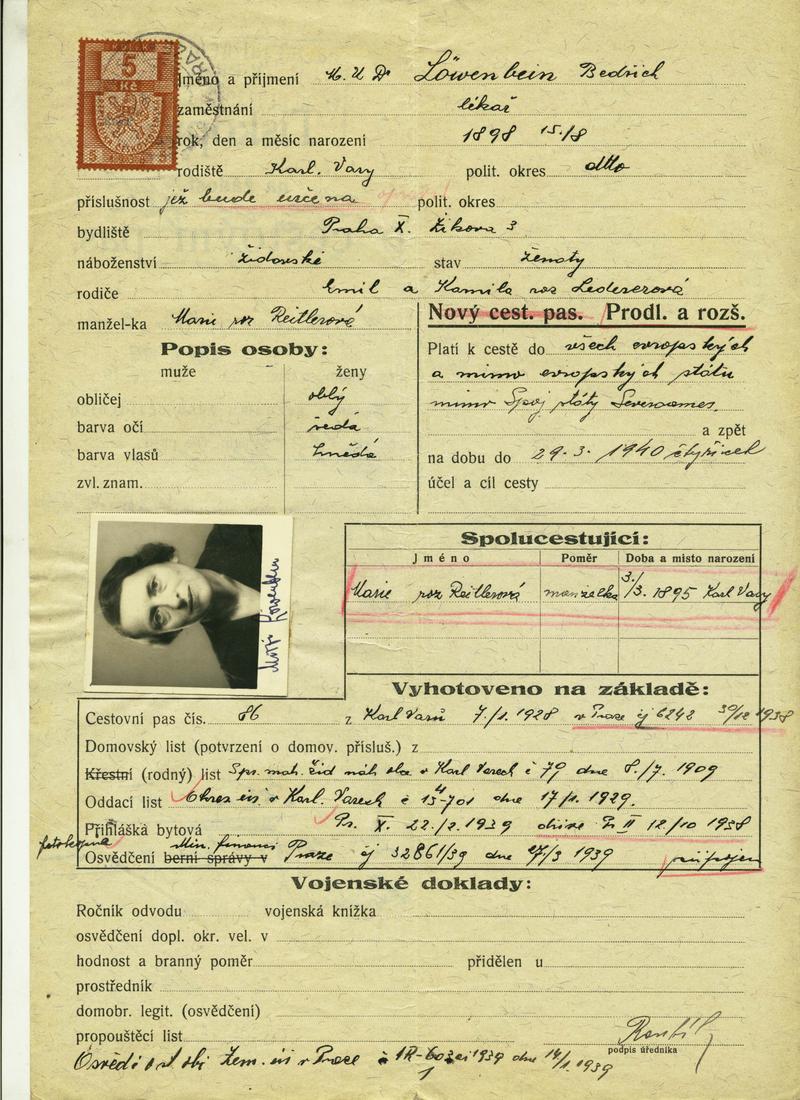 KOLEK
5
Kč
Jméno a příjmení M.U.Dr Löwenbein Bedřich
zaměstnání lékař
rok, den a měsíc narození 1898 15./8
rodiště Karl. Vary polit. okres dtto
příslušnost jež bude určena polit. okres
bydliště Praha X. Žižkova 3
náboženství židovské stav ženatý
rodiče Emil a Kamila roz Ledererová
manžel-ka Marie roz Reitlerová
Nový cest. pas. Prodl. a rozš.
Popis osoby:
muže ženy
obličej oblý
barva očí šedá
barva vlasů hnědá
zvl. znam.
Platí k cestě do všech evropských
a mimo evropských států
mimo Spoj státy Severoamer.
a zpět
na dobu do 29. 3. 1940 čtyřicet
účel a cíl cesty
Spolucestující:
Jméno Poměr Doba a místo narození
Marie roz Reitlerová manželka 3./3. 1895 Karl Vary
Vyhotoveno na základě:
Cestovní pas čís. 86 z Karl Varů 7./1. 1928 v Praze čj 6242 30/12 1938
Domovský list (potvrzení o domov. přísluš.) z
Křestní (rodný) list Spr. mat. žid náb obce v Karl Varech č 79 dne 8./7. 1909
Oddací list Okres úř v Karl. Varech č 15-701 dne 17/1. 1929.
Přihláška bytová Pr. X. 22/2. 1939 dříve P. II 12/10 1938
fotokopie
Osvědčení berní správy v Min. financí Praze čj 32861/39 dne 27./3 1939
Vojenské doklady:
Ročník odvodu vojenská knížka
osvědčení dopl. okr. vel. v
hodnost a branný poměr přidělen u
prostředník
domobr. legit. (osvědčení)
propouštěcí list
podpis úředníka
Osvědč o st obč Zem. úř v Praze 1939 dne 14/1. 1939